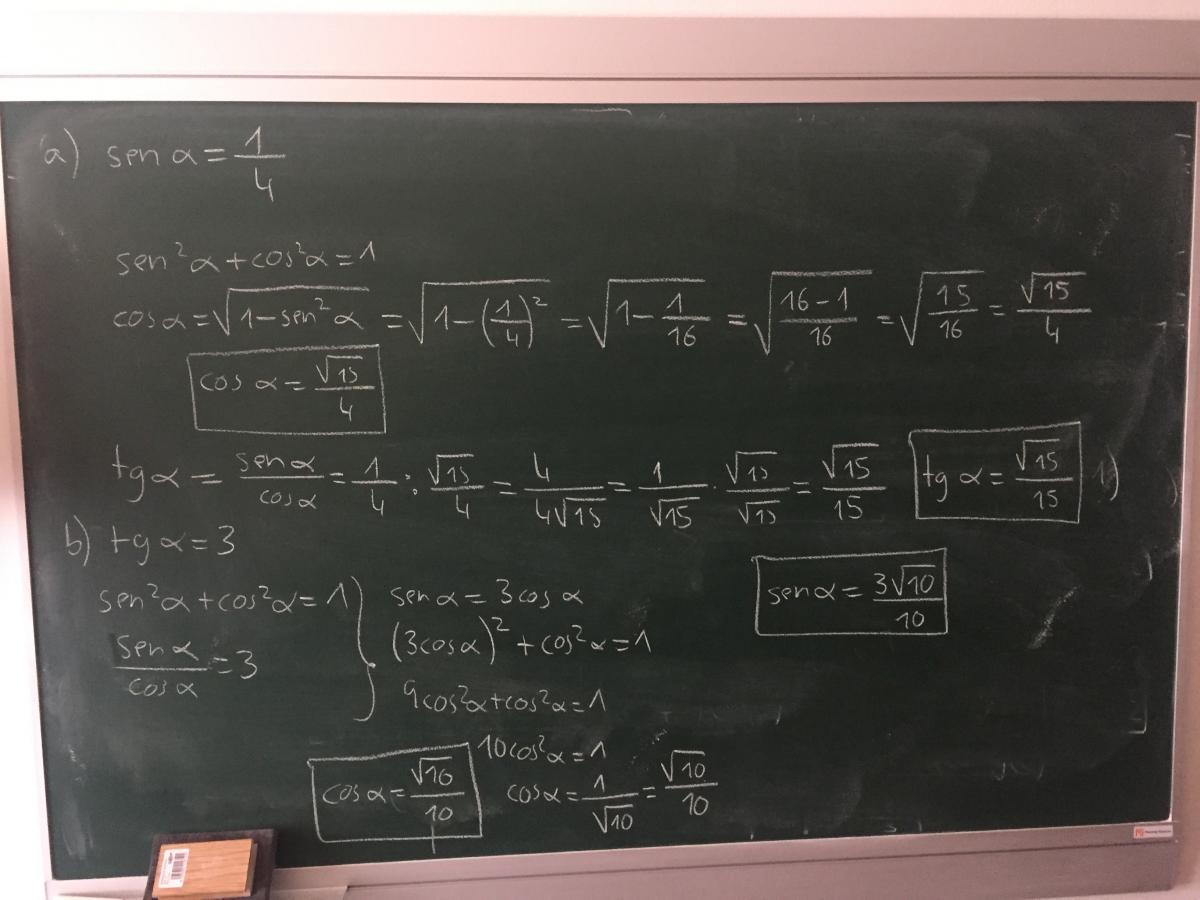 a) sen α = 1/4
sen²α + cos²α = 1
cos α = √(1 − sen²α) = √(1 − (1/4)²) = √(1 − 1/16) = √((16 − 1)/16) = √(15/16) = √15/4
cos α = √15/4
tg α = sen α/cos α = 1/4 : √15/4 = 4/(4√15) = 1/√15 · √15/√15 = √15/15
tg α = √15/15
b) tg α = 3
sen²α + cos²α = 1
sen α/cos α = 3
}
sen α = 3 cos α
(3cos α)² + cos²α = 1
9cos²α + cos²α = 1
10cos²α = 1
cos α = 1/√10 = √10/10
cos α = √10/10
sen α = 3√10/10